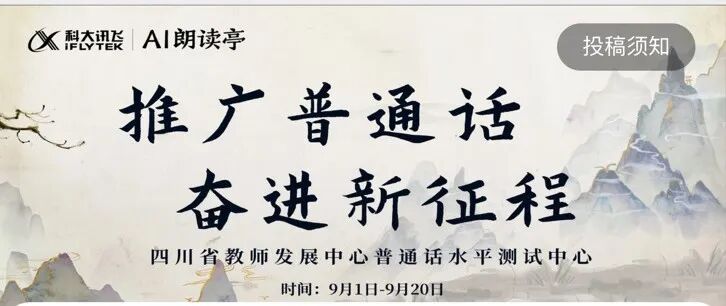 科大讯飞 iFLYTEK | AI朗读亭
投稿须知
推广普通话
奋进新征程
四川省教师发展中心普通话水平测试中心
时间：9月1日-9月20日